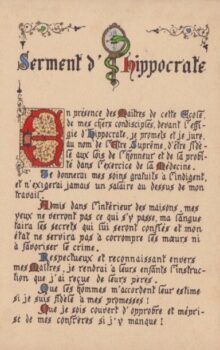 Serment d'Hippocrate
En présence des Maîtres de cette École,
de mes chers condisciples, devant l'effi-
gie d'Hippocrate, je promets et je jure,
au nom de l'Être Suprême, d'être fidè-
le aux lois de l'honneur et de la probi-
té dans l'exercice de la Médecine.
Je donnerai mes soins gratuits à l'indigent,
et n'exigerai jamais un salaire au dessus de mon
travail.
Admis dans l'intérieur des maisons, mes
yeux ne verront pas ce qui s'y passe, ma langue
taira les secrets qui lui seront confiés et mon
état ne servira pas à corrompre les mœurs ni
à favoriser le crime.
Respectueux et reconnaissant envers
mes Maîtres, je rendrai à leurs enfants l'instruc-
tion que j'ai reçue de leurs pères.
Que les hommes m'accordent leur estime
si je suis fidèle à mes promesses !
Que je sois couvert d'opprobre et mépri-
sé de mes confrères si j'y manque !